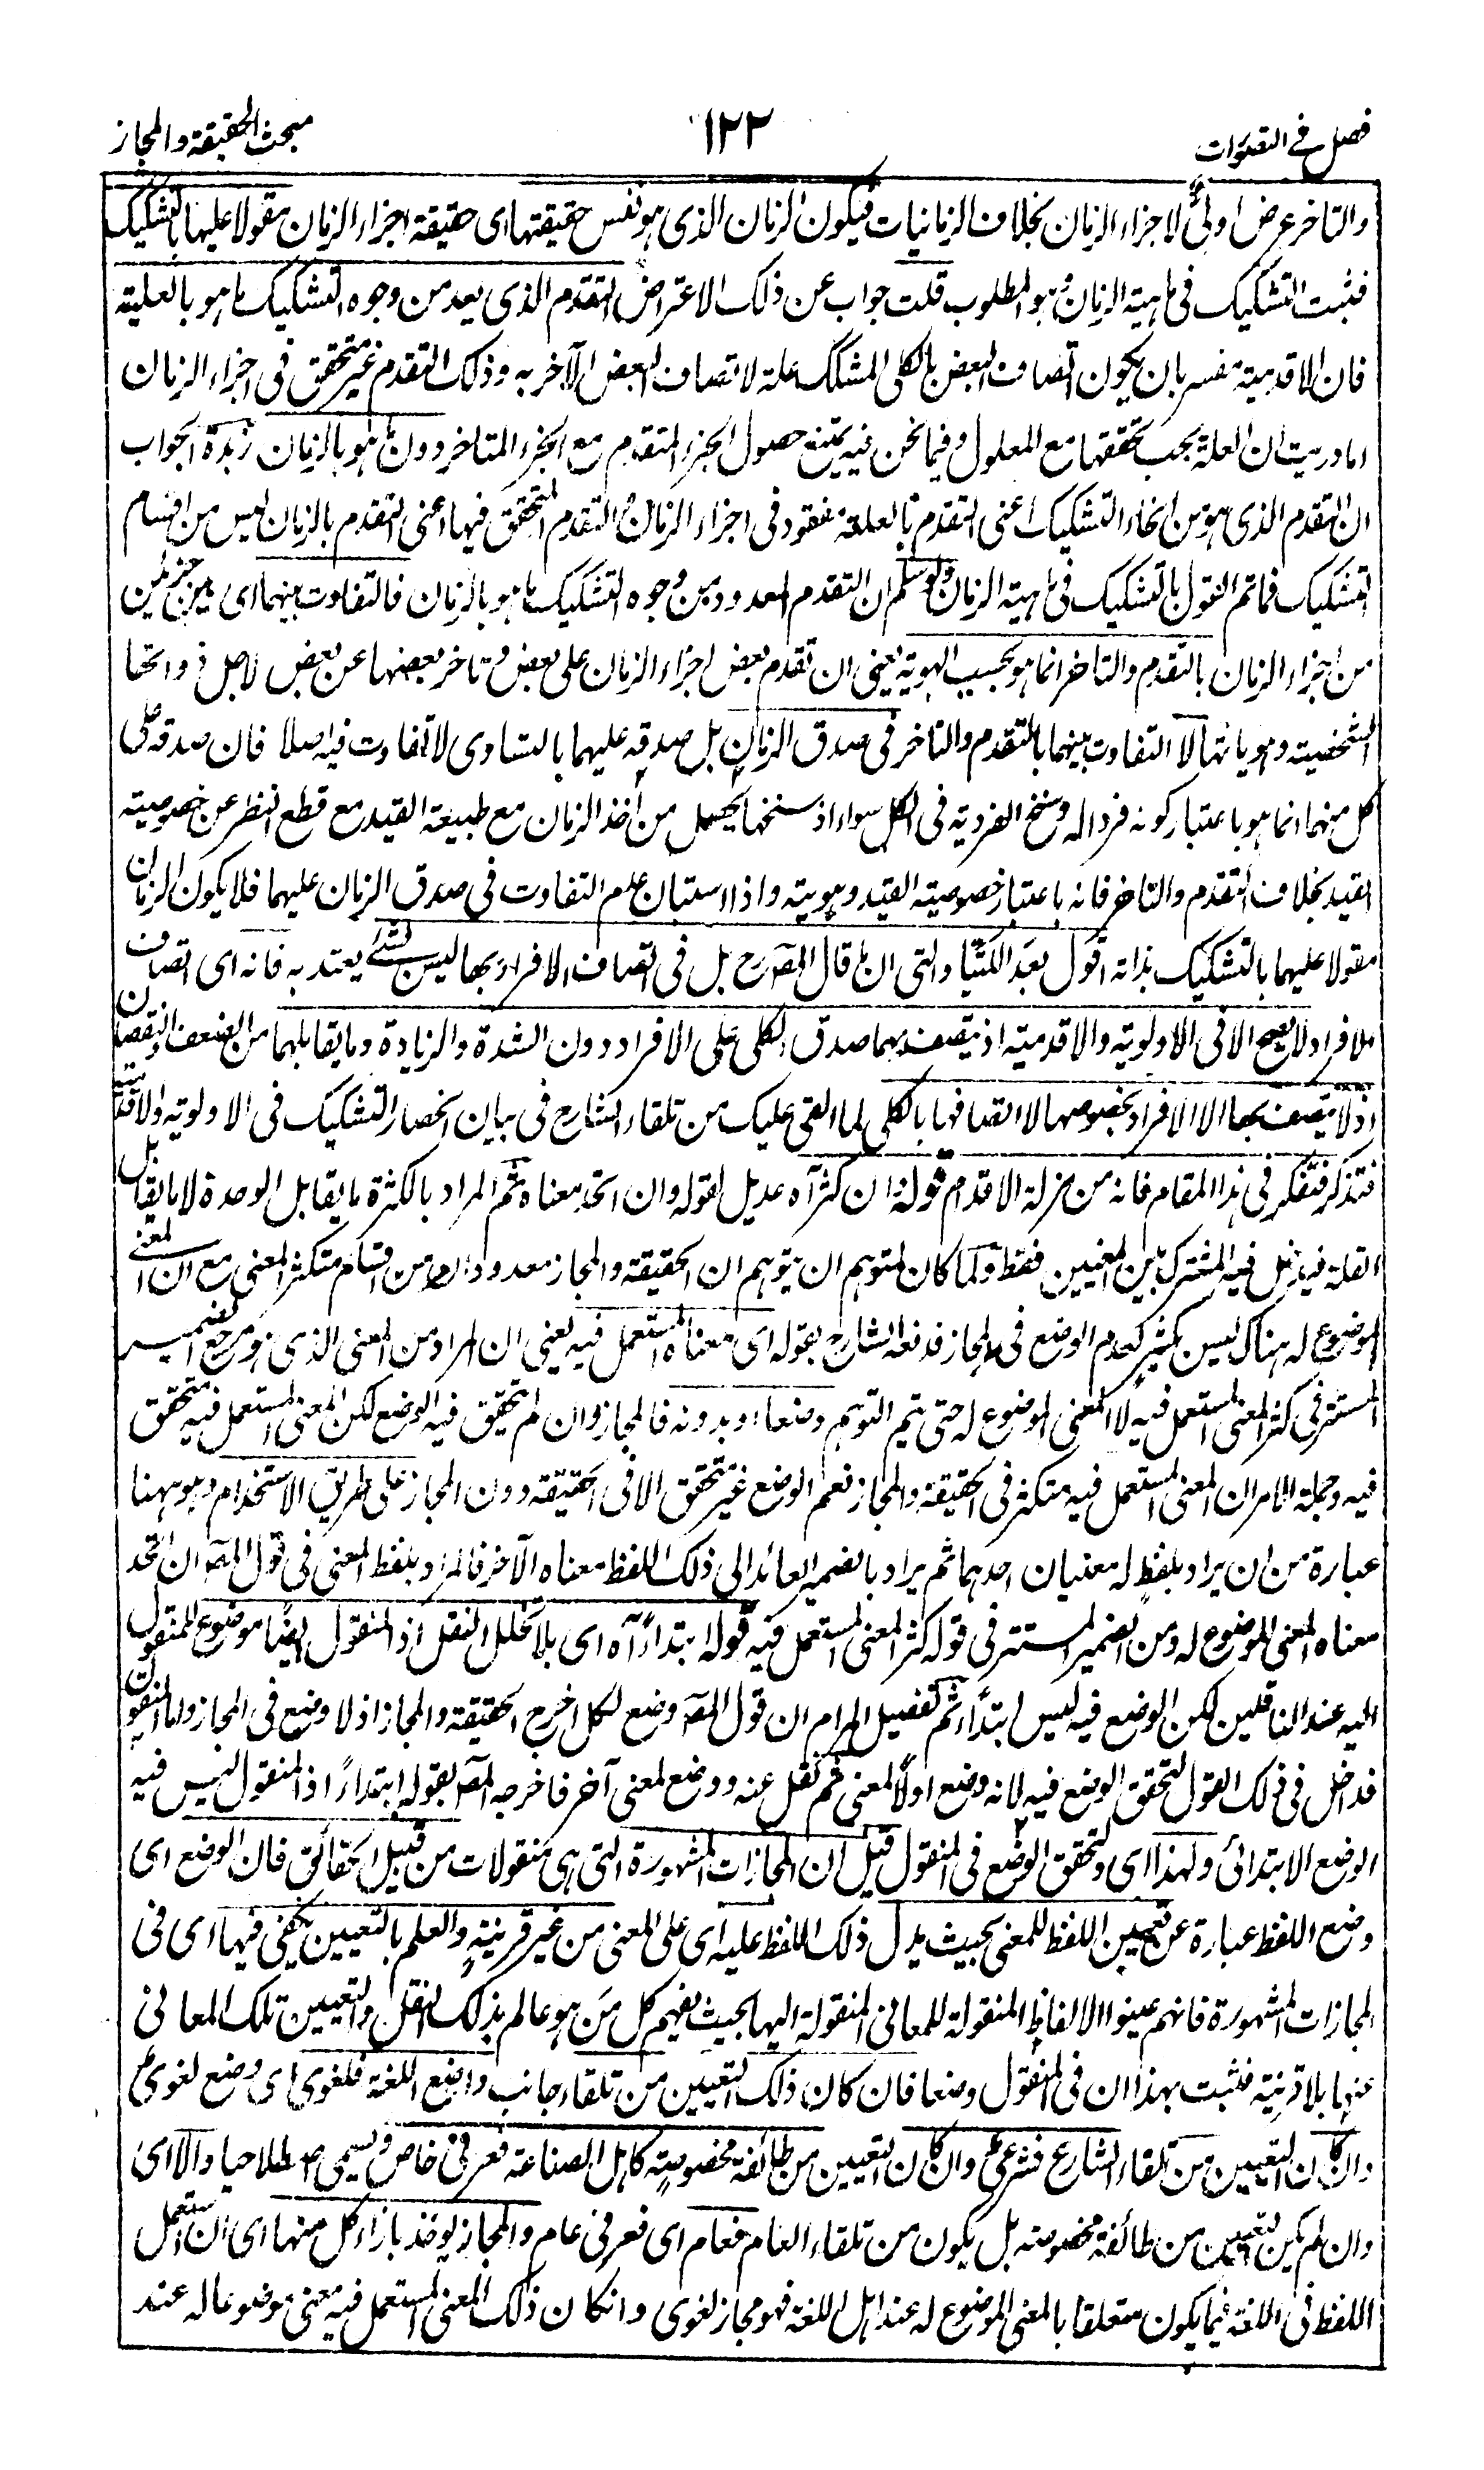 فصل في التصورات
١٢٢
مبحث الحقيقة والمجاز
والتاخر عرض اولىّ لاجزاء الزمان بخلاف الزمانيات فيكون الزمان الذى هو نفس حقيقتها اى حقيقة اجزاء الزمان مقولا عليها بالتشكيك
فثبت التشكيك فى ماهية الزمان وهو المطلوب قلت جواب عن ذلك الاعتراض التقدم الذى يعد من وجوه التشكيك ما هو بالعلية
فان الاقدمية مفسر بان يكون اتصاف البعض بالكلى المشكك علة لاتصاف البعض الآخر به وذلك التقدم غير متحقق فى اجزاء الزمان
اما دريت ان العلة يجب تحققها مع المعلول وفيما نحن فيه يمتنع حصول الجزء المتقدم مع الجزء المتاخر دون ما هو بالزمان زبدة الجواب
ان التقدم الذى هو من انحاء التشكيك اعنى التقدم بالعلية مفقود فى اجزاء الزمان والتقدم المتحقق فيها اعنى التقدم بالزمان ليس من اقسام
التشكيك فما تم القول بالتشكيك فى ماهية الزمان ولو سلم ان التقدم المعدود من وجوه التشكيك ما هو بالزمان فالتفاوت بينهما اى بين جزئين
من اجزاء الزمان بالتقدم والتاخر انما هو بحسب الهوية يعنى ان تقدم بعض اجزاء الزمان على بعض وتاخر بعضها عن بعض لاجل ذواتها
الشخصية وهوياتها لا التفاوت بينهما بالتقدم والتاخر فى صدق الزمان بل صدقه عليهما بالتساوى لا تفاوت فيه اصلا فان صدقه على
كل منهما انما هو باعتبار كونه فردا له وسنخ الفردية فى الكل سواء اذ سنخها يحصل من اخذ الزمان مع طبيعة القيد مع قطع النظر عن خصوصية
القيد بخلاف التقدم والتاخر فانه باعتبار خصوصية القيد وهويته واذا استبان عدم التفاوت فى صدق الزمان عليهما فلا يكون الزمان
مقولا عليهما بالتشكيك بذاته اقول بعد اللتيا والتى ان ما قال المصـ رح بل فى اتصاف الافراد بها ليس بشئ يعتد به فانه اى اتصاف
الافراد لا يصح الا فى الاولوية والاقدمية اذ يتصف بهما صدق الكلى على الافراد دون الشدة والزيادة وما يقابلهما من الضعف والنقصان
اذ لا يتصف بها الا الافراد بخصوصها لا اتصافها بالكلى لما القى عليك من تلقاء الشارح فى بيان انحصار التشكيك فى الاولوية والاقدمية
فتذكر فتفكر فى هذا المقام فانه من مزلة الاقدام قوله وان كثر آه عديل لقوله وان اتحد معناه ثم المراد بالكثرة ما يقابل الوحدة لا ما يقابل
القلة فيدخل فيه المشترك بين المعنيين فقط ولما كان لمتوهم ان يتوهم ان الحقيقة والمجاز معدودان من اقسام متكثر المعنى مع ان المعنى
الموضوع له هناك ليس بكثير لعدم الوضع فى المجاز فدفعه الشارح بقوله اى معناه المستعمل فيه يعنى ان المراد من المعنى الذى هو مرجع الضمير
المستتر فى كثر المعنى المستعمل فيه لا المعنى الموضوع له حتى يتم التوهم وضعا او بدونه فالمجاز وان لم يتحقق فيه الوضع لكن المعنى المستعمل فيه متحقق
فيه وجملة المرام ان المعنى المستعمل فيه متكثر فى الحقيقة والمجاز نعم الوضع غير متحقق الا فى الحقيقة دون المجاز على طريق الاستخدام وهو ههنا
عبارة من ان يراد بلفظ له معنيان احدهما ثم يراد بالضمير العائد الى ذلك اللفظ معناه الآخر فالمراد بلفظ المعنى فى قول المصـ ان اتحد
معناه المعنى الموضوع له ومن الضمير المستتر فى قوله كثر المعنى المستعمل فيه قوله ابتداءً آه اى بلا تخلل النقل اذ المنقول ايضًا موضوع للمنقول
اليه عند الناقلين لكن الوضع فيه ليس ابتداء ثم تفصيل المرام ان قول المصـ وضع لكل اخرج الحقيقة والمجاز اذ لا وضع فى المجاز واما المنقول
فداخل فى ذلك القول لتحقق الوضع فيه لانه وضع اولاً لمعنى ثم نقل عنه ووضع لمعنى آخر فاخرجه المصـ بقوله ابتداءً اذ المنقول ليس فيه
الوضع الابتدائى ولهذا اى ولتحقق الوضع فى المنقول قيل ان المجازات المشهورة التى هى منقولات من قبيل الحقائق فان الوضع اى
وضع اللفظ عبارة عن تعيين اللفظ للمعنى بحيث يدل ذلك اللفظ عليه اى على المعنى من غير قرينة والعلم بالتعيين يكفى فيها اى فى
المجازات المشهورة فانهم عينوا الالفاظ المنقولة للمعانى المنقولة اليها بحيث يفهم كل من هو عالم بذلك النقل والتعيين تلك المعانى
عنها بلا قرينة فثبت بهذا ان فى المنقول وضعا فان كان ذلك التعيين من تلقاء جانب واضع اللغة فلغوى اى وضع لغوى
وان كان التعيين من تلقاء الشارع فشرعى وان كان التعيين من طائفة مخصوصة كاهل الصناعة فعرفى خاص ويسمى اصطلاحيا والا اى
وان لم يكن التعيين من طائفة مخصوصة بل يكون من تلقاء العام فعام اى فعرفى عام والمجاز يوخذ بازاء كل منها اى ان استعمل
اللفظ فى اللغة فيما يكون متعلقا بالمعنى الموضوع له عند اهل اللغة فهو مجاز لغوى وانكان ذلك المعنى المستعمل فيه معنى موضوعا له عند